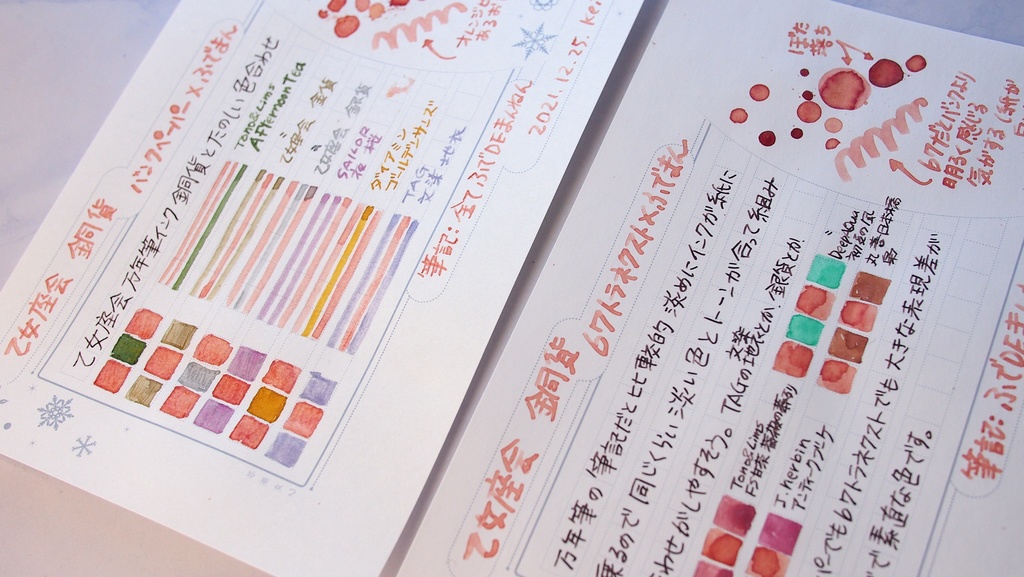 乙女座会 銅貨
バンクペーパー×ふでほん
オレンジと
乙女座会 万年筆インク 銅貨とたのしい色合わせ
Tono&Lims
Afternoon Tea
乙女座会 金貨
乙女座会 銀貨
SAILOR
ダイアミン
ゴールデンサンズ
TAG
文染
筆記:全てふでDEまんねん
2021.12.25
乙女座会 銅貨
6ワトラネクスト×ふでほん
ぼた
落ち
6ワだとバンクより
明るく感じる
気がする
万年筆の筆記だと比較的淡めにインクが紙に
乗るので同じくらい淡い色とトーンが合って組み
わせがしやすそう。TAGの文染
とか、銀貨とか
初夏の風
丸善日本橋
Tono&Lims
J.herbin
アンティークブーケ
でも6ワトラネクストでも大きな表現差が
で素直な色です。
筆記:ふでDEまん